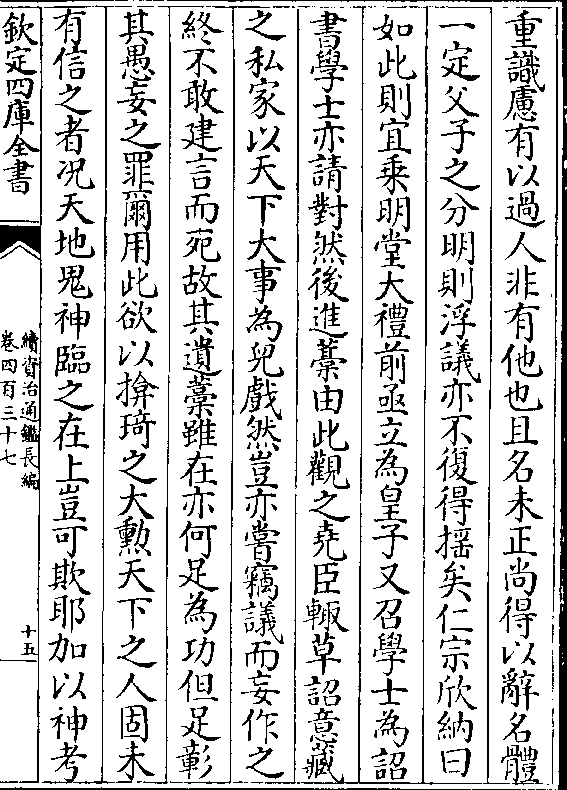 重識慮有以過人非有他也且名未正尚得以辭名體
一定父子之分明則浮議亦不復得揺矣仁宗欣納曰
如此則宜乗明堂大禮前亟立為皇子又召學士為詔
書學士亦請對然後進藁由此觀之堯臣輙草詔意藏
之私家以天下大事為兒戲然豈亦嘗竊議而妄作之
終不敢建言而死故其遺藁雖在亦何足為功但足彰
其愚妄之罪爾用此欲以揜琦之大勲天下之人固未
有信之者况天地鬼神臨之在上豈可欺耶加以神考
欽定四庫全書
續資治通鑑長編
卷四百三十七
十五